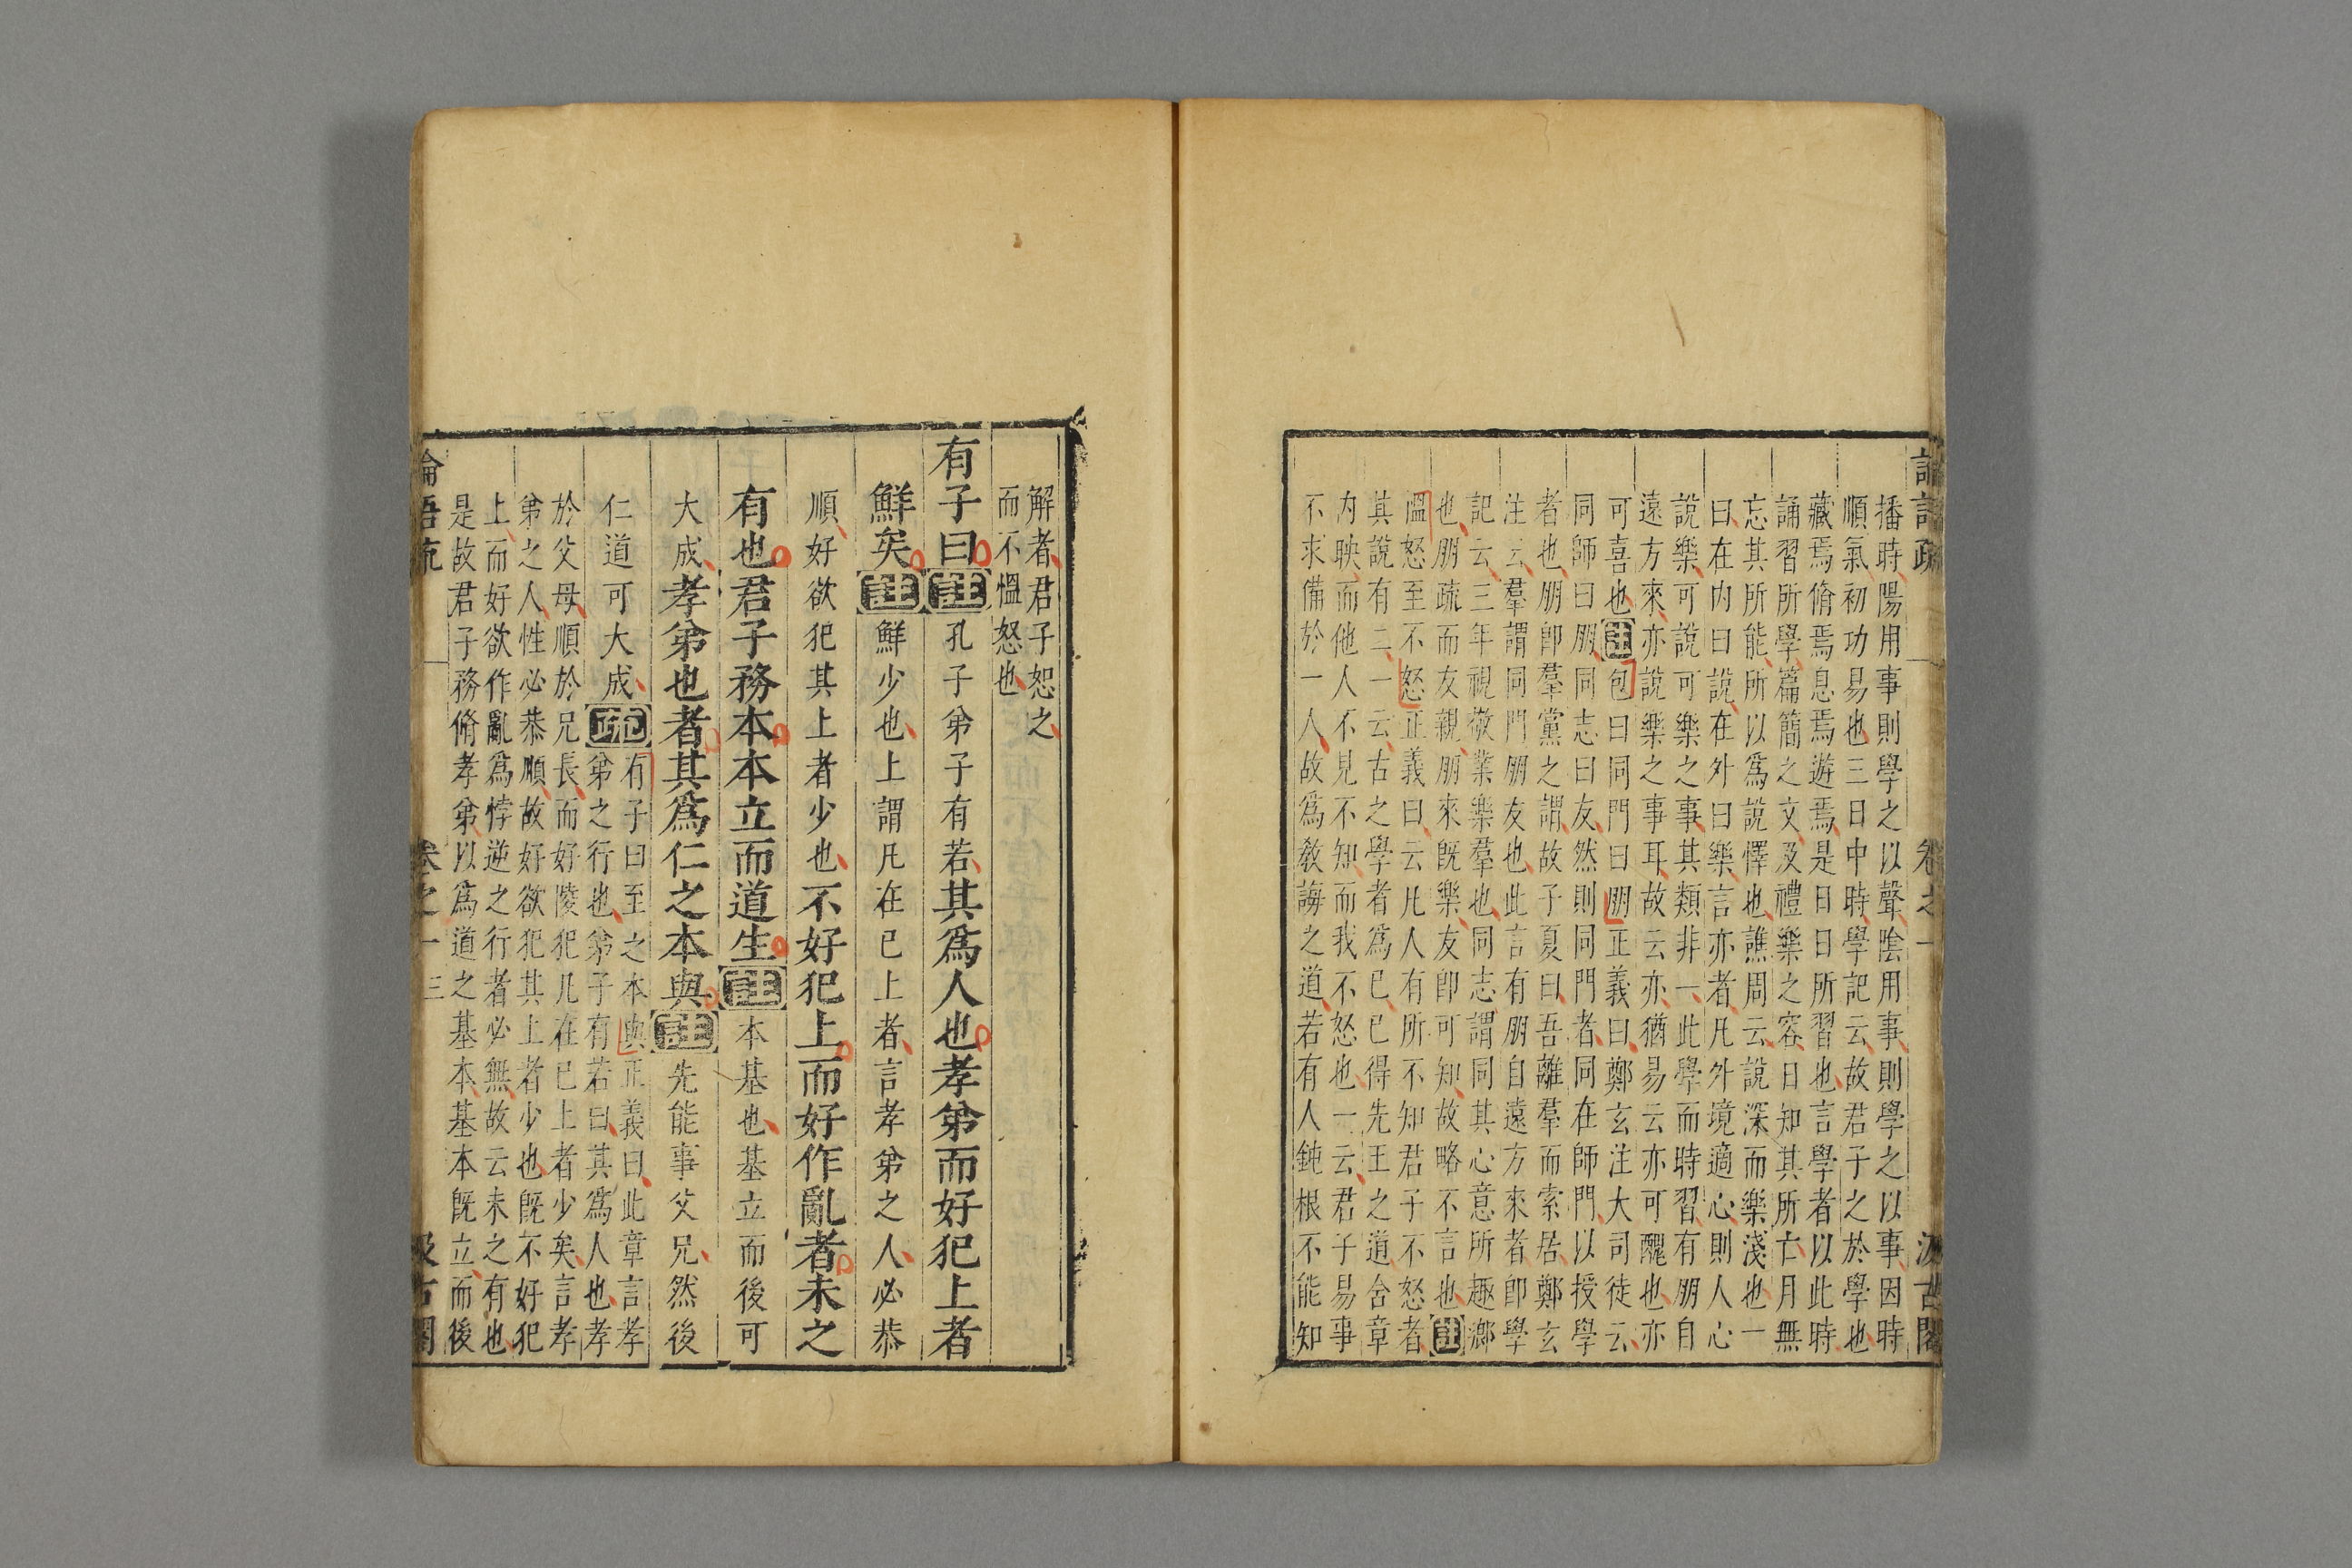 論語疏 卷之一 汲古閣
播時陽用事則學之以聲陰用事則學之以事因時
順氣初功易也三日中時學記云故君子之於學也
藏焉脩焉息焉遊焉是日日所習也言學者以此時
誦習所學篇簡之文及禮樂之容日知其所亡月無
忘其所能所以爲說懌也譙周云說深而樂淺也一
曰在內曰說在外曰樂言亦者凡外境適心則人心
說樂可說可樂之事其類非一此學而時習有朋自
遠方來亦說樂之事耳故云亦亦猶易云亦可醜也亦
可喜也註包曰同門曰朋正義曰鄭玄注大司徒云
同師曰朋同志曰友然則同門者同在師門以授學
者也朋卽羣黨之謂故子夏曰吾離羣而索居鄭玄
注云羣謂同門朋友也此言有朋自遠方來者卽學
記云三年視敬業樂羣也同志謂同其心意所趣鄉
也朋疏而友親朋來既樂友卽可知故略不言也註
慍怒至不怒正義曰云凡人有所不知君子不怒者
其說有二一云古之學者爲已已得先王之道含章
內映而他人不見不知而我不怒也一云君子易事
不求備於一人故爲敎誨之道若有人鈍根不能知
解者君子恕之
而不慍怒也
有子曰註孔子弟子有若其爲人也孝弟而好犯上者
鮮矣註鮮少也上謂凡在已上者言孝弟之人必恭
順好欲犯其上者少也不好犯上而好作亂者未之
有也君子務本本立而道生註本基也基立而後可
大成孝弟也者其爲仁之本與註先能事父兄然後
仁道可大成疏有子曰至之本與正義曰此章言孝
弟之行也弟子有若曰其爲人也孝
於父母順於兄長而好陵犯凡在已上者少矣言孝
弟之人性必恭順故好欲犯其上者少也既不好犯
上而好欲作亂爲悖逆之行者必無故云未之有也
是故君子務脩孝弟以爲道之基本基本既立而後
論語疏 卷之一 三 汲古閣